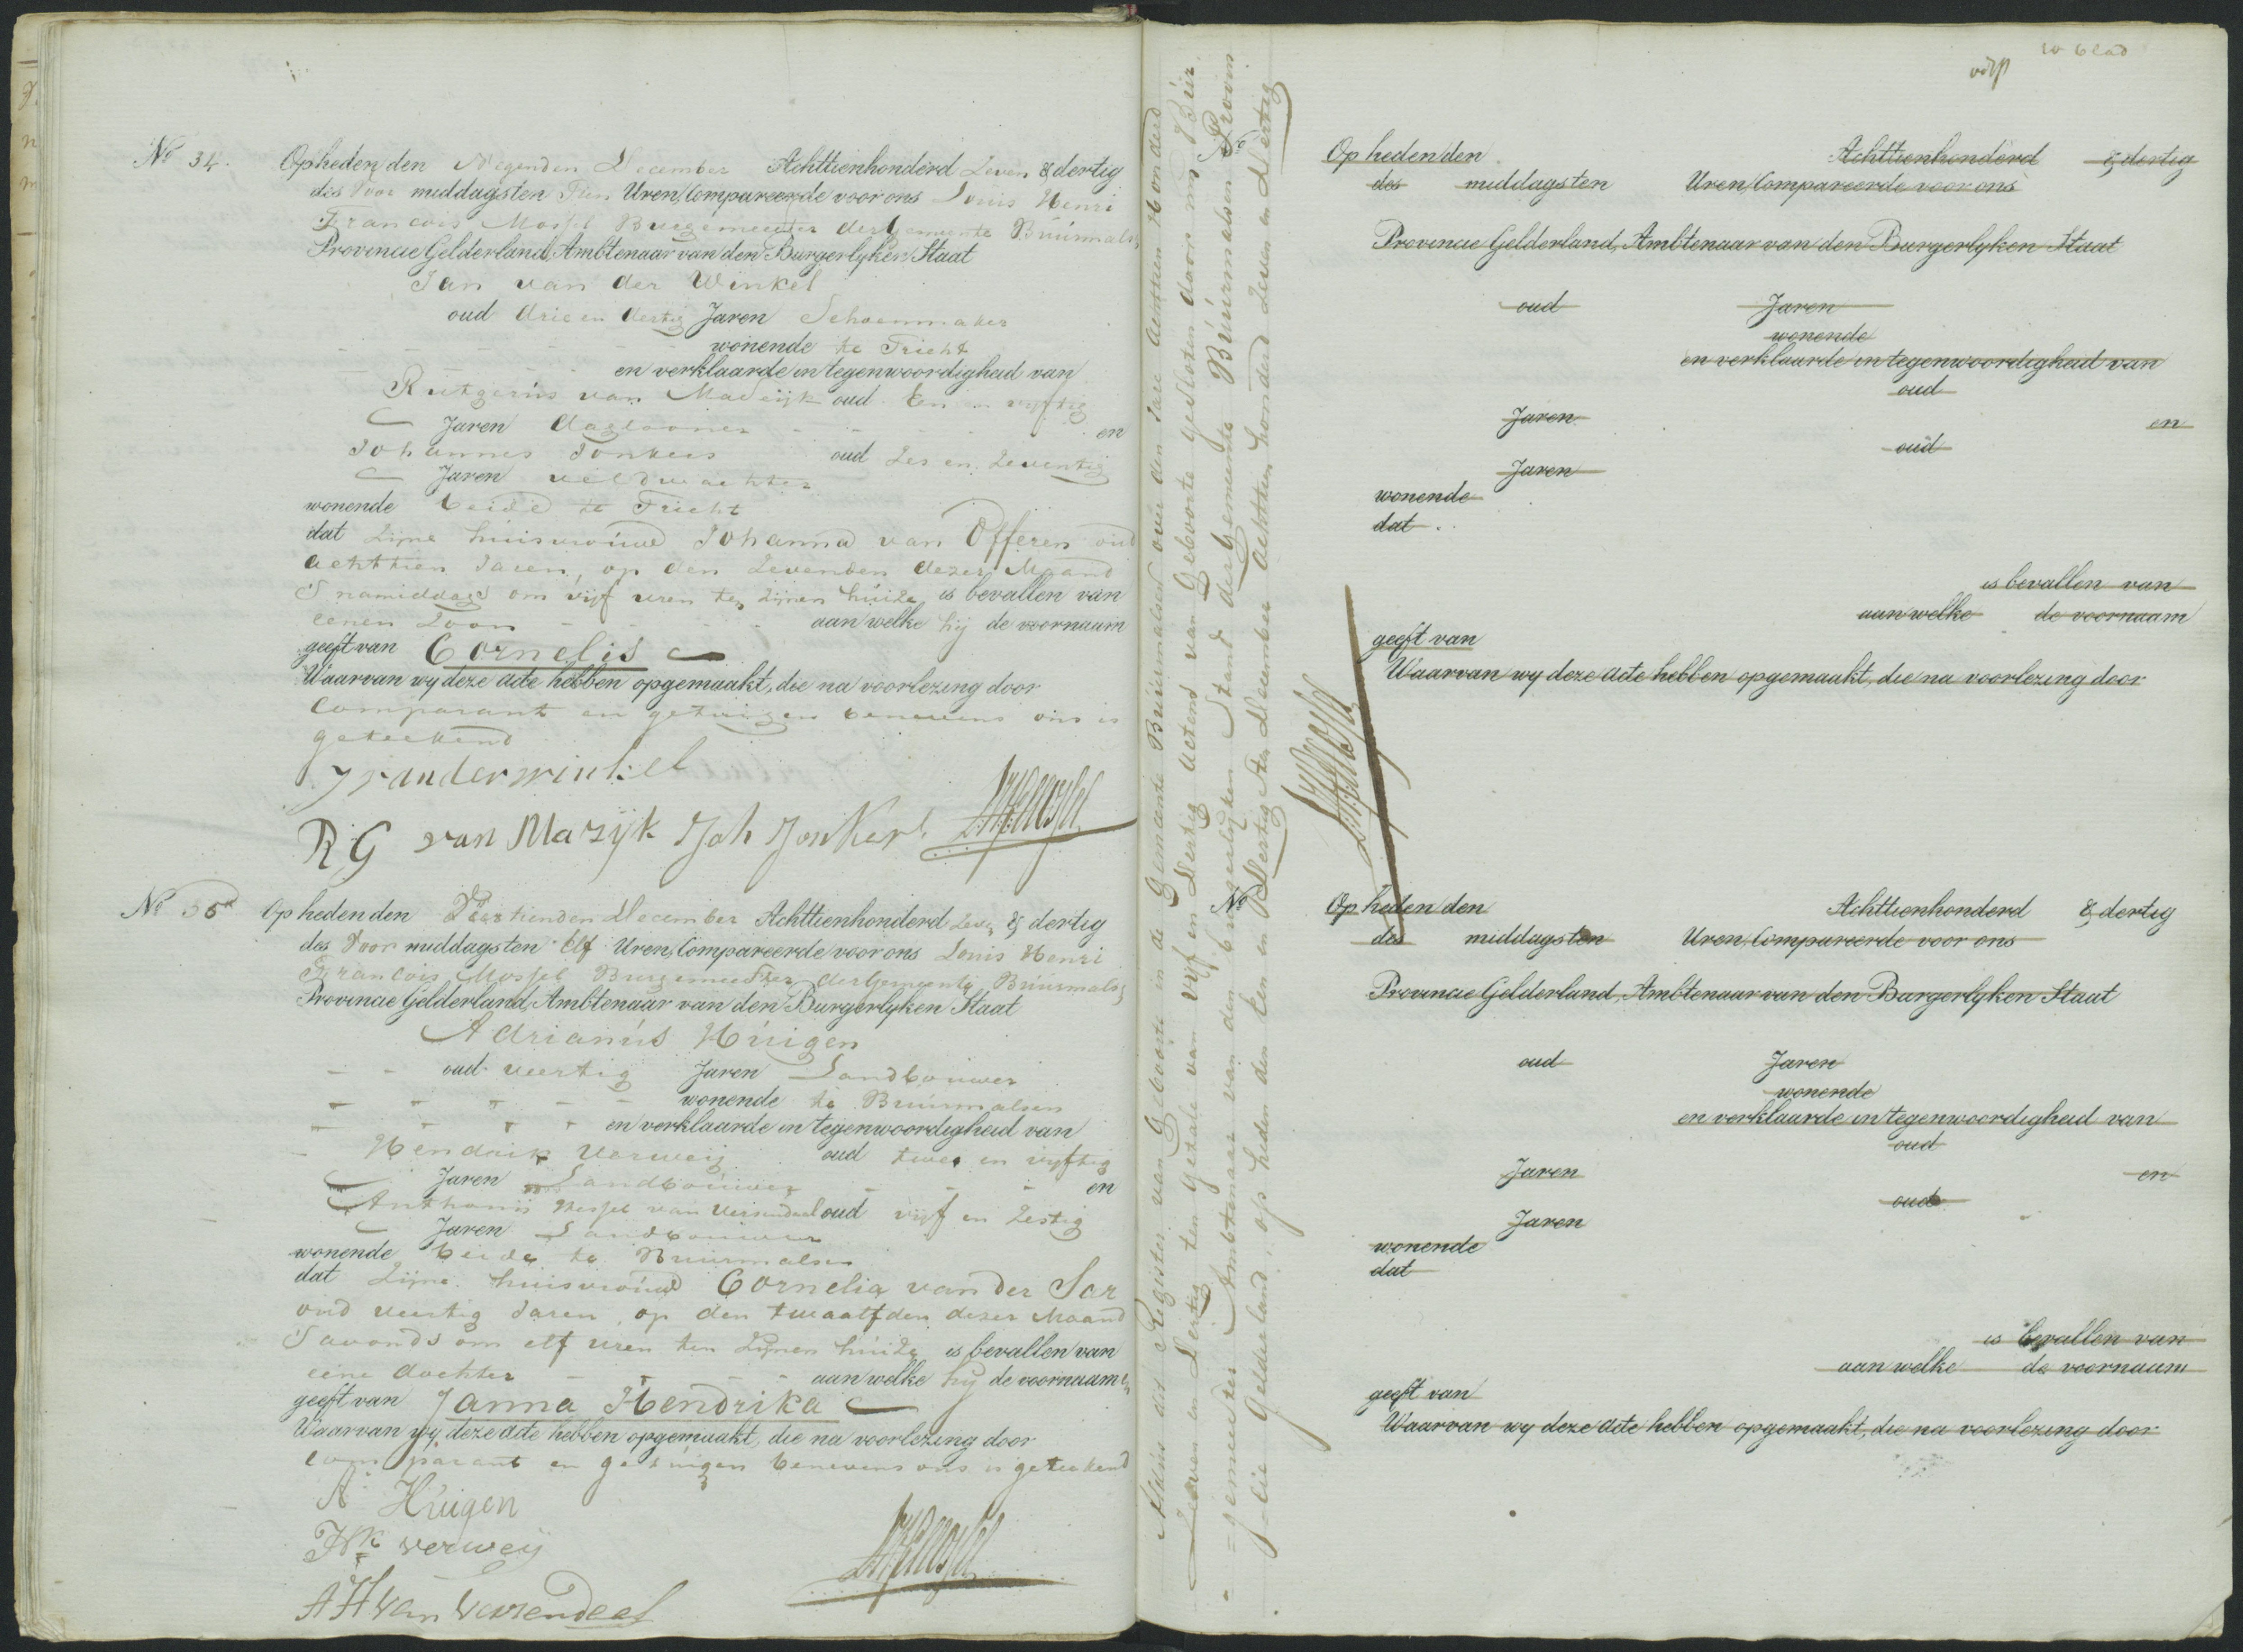 No 34. Op heden den Negenden December Achttienhonderd Zeven & dertig
des Voor middags ten Tien Uren, Compareerde voor ons Louis Henri
Francois Mossel Burgemeester der Gemeente Buurmalsen
Provincie Gelderland, Ambtenaar van den Burgerlyken Staat
Jan van der Winkel
oud drie en dertig Jaren Schoenmaker
wonende te Tricht
en verklaarde in tegenwoordigheid van
Rutgerus van Maurijk oud en vyftig
Jaren daglooner en
Johannes Jonkers oud Zes en Zeventig
Jaren veldwachter
wonende beide te Tricht
dat Zijne huisvrouwe Johanna van Offeren oud
achttien Jaren, op den Zevenden dezer Maand
S namiddags om vijf uren ten Zijnen huize is bevallen van
eenen Zoon aan welke hij de voornaam
geeft van Cornelis
Waarvan wy deze acte hebben opgemaakt, die na voorlezing door
Comparant en getuigen benevens ons is
geteekend
J van der winkel
RG van Mazijk Joh Jonkers LHFMossel
No 35 Op heden den Veertienden December Achttienhonderd Zeven & dertig
des Voor middags ten Elf Uren, Compareerde voor ons Louis Henri
Francois Mossel Burgemeester der Gemeente Buurmalsen
Provincie Gelderland, Ambtenaar van den Burgerlyken Staat
Adrianus Huigen
oud veertig Jaren Landbouwer
wonende te Buurmalsen
en verklaarde in tegenwoordigheid van
Hendrik Verweij oud twee en vyftig
Jaren Landbouwer en
Anthonij Hessel van Versendaal oud vijf en Zestig
Jaren Landbouwer
wonende beide te Buurmalsen
dat Zijne huisvrouwe Cornelia van der Sar
oud veertig Jaren, op den twaalfden dezer Maand
S avonds om elf uren ten Zijnen huize is bevallen van
eene dochter aan welke hij de voornaamen
geeft van Janna Hendrika
Waarvan wy deze acte hebben opgemaakt, die na voorlezing door
Comparant en getuigen benevens ons is geteekend
A Huigen
Hk verweij LHFMossel
AH van Versendaal
Aldus dit Register van Geboorte in de Gemeente Buurmalsen over den Jare Achttien Honderd
Zeven en Dertig ten getale van Vijf en Dertig Actens van Geboorte gesloten door mij Bur
=gemeester Ambtenaar van den Burgerlijken Stand der Gemeente Buurmalsen Provin
=cie Gelderland, op heden den een en Dertigsten December achttien honderd Zeven en Dertig
LHFMossel
10 blad
No Op heden den Achttienhonderd & dertig
des middags ten Uren, Compareerde voor ons
Provincie Gelderland, Ambtenaar van den Burgerlyken Staat
oud Jaren
wonende
en verklaarde in tegenwoordigheid van
oud
Jaren en
oud
Jaren
wonende
dat
is bevallen van
aan welke de voornaam
geeft van
Waarvan wy deze acte hebben opgemaakt, die na voorlezing door
No Op heden den Achttienhonderd & dertig
des middags ten Uren, Compareerde voor ons
Provincie Gelderland, Ambtenaar van den Burgerlyken Staat
oud Jaren
wonende
en verklaarde in tegenwoordigheid van
oud
Jaren en
oud
Jaren
wonende
dat
is bevallen van
aan welke de voornaam
geeft van
Waarvan wy deze acte hebben opgemaakt, die na voorlezing door